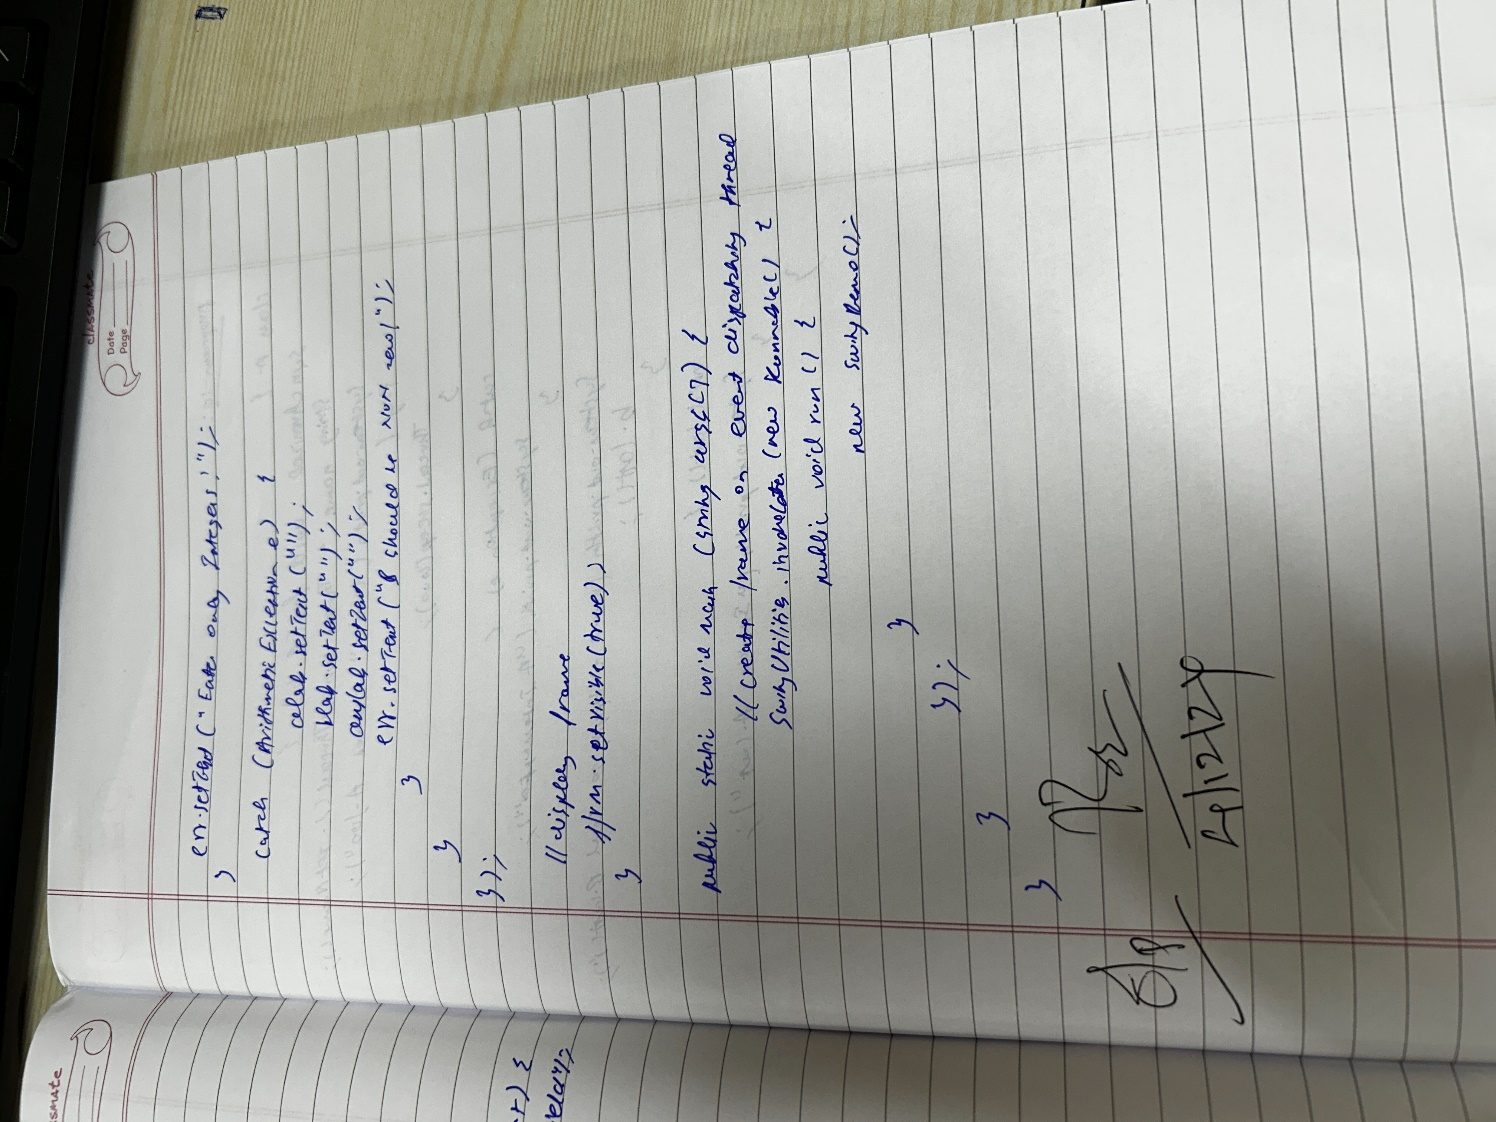 classmate
Date
Page
err.setText("Enter only Integers!");
}
catch (ArithmeticException e) {
alab.setText("");
blab.setText("");
anslab.setText("");
err.setText("B should be NON zero!");
}
}
});
//display frame
jfrm.setVisible(true);
}
public static void main (String args[]) {
// create frame on event dispatching thread
SwingUtilities.invokeLater (new Runnable() {
public void run () {
new SwingDemo();
}
});
}
}
4/12/24